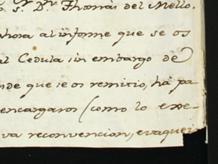 Dⁿ. Thomas del Mello,
ahora al informe que se os
al Cedula sin embargo de
nde que se os remitio, ha pa
encargaros (como lo exe-
va reconvencion, evaquei